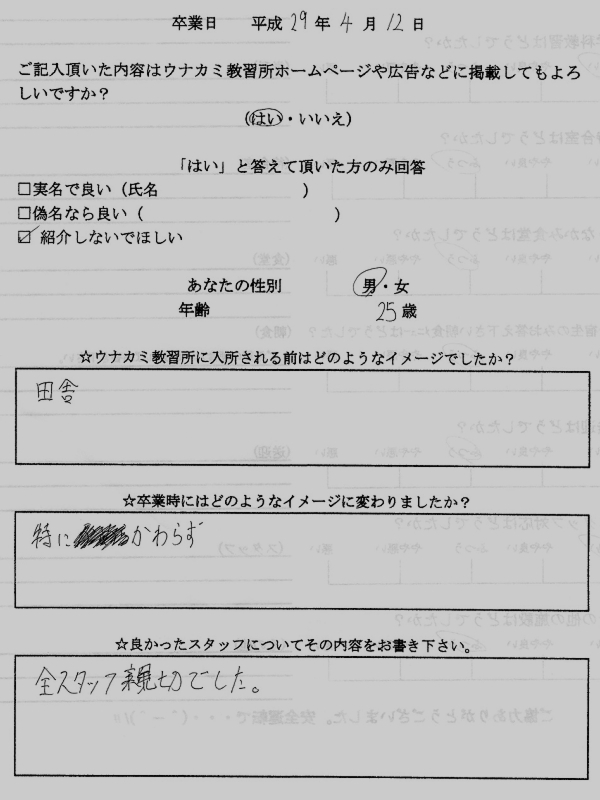 卒業日 平成29年4月12日
ご記入頂いた内容はウナカミ教習所ホームページや広告などに掲載してもよろ
しいですか？
（はい・いいえ）
「はい」と答えて頂いた方のみ回答
□実名で良い（氏名 ）
□偽名なら良い（ ）
☑紹介しないでほしい
あなたの性別 男・女
年齢 25歳
☆ウナカミ教習所に入所される前はどのようなイメージでしたか？
田舎
☆卒業時にはどのようなイメージに変わりましたか？
特にかわらず
☆良かったスタッフについてその内容をお書き下さい。
全スタッフ親切でした。
ご協力ありがとうございました。安全運転で・・・(＾－＾)/"